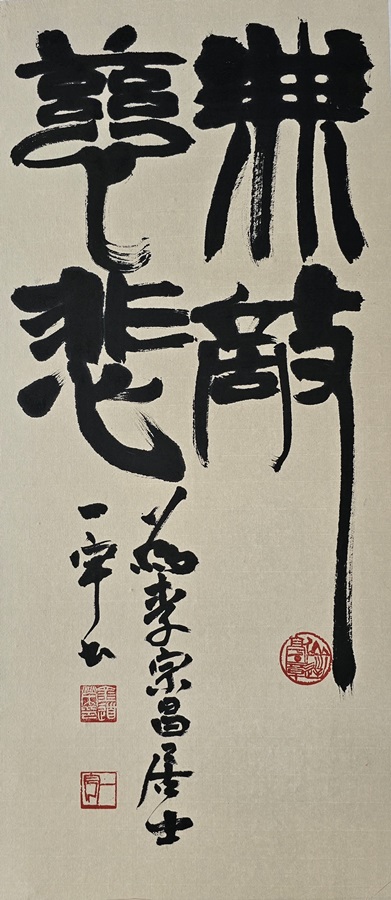 無敵
慈悲
為李宗昌居士
一書